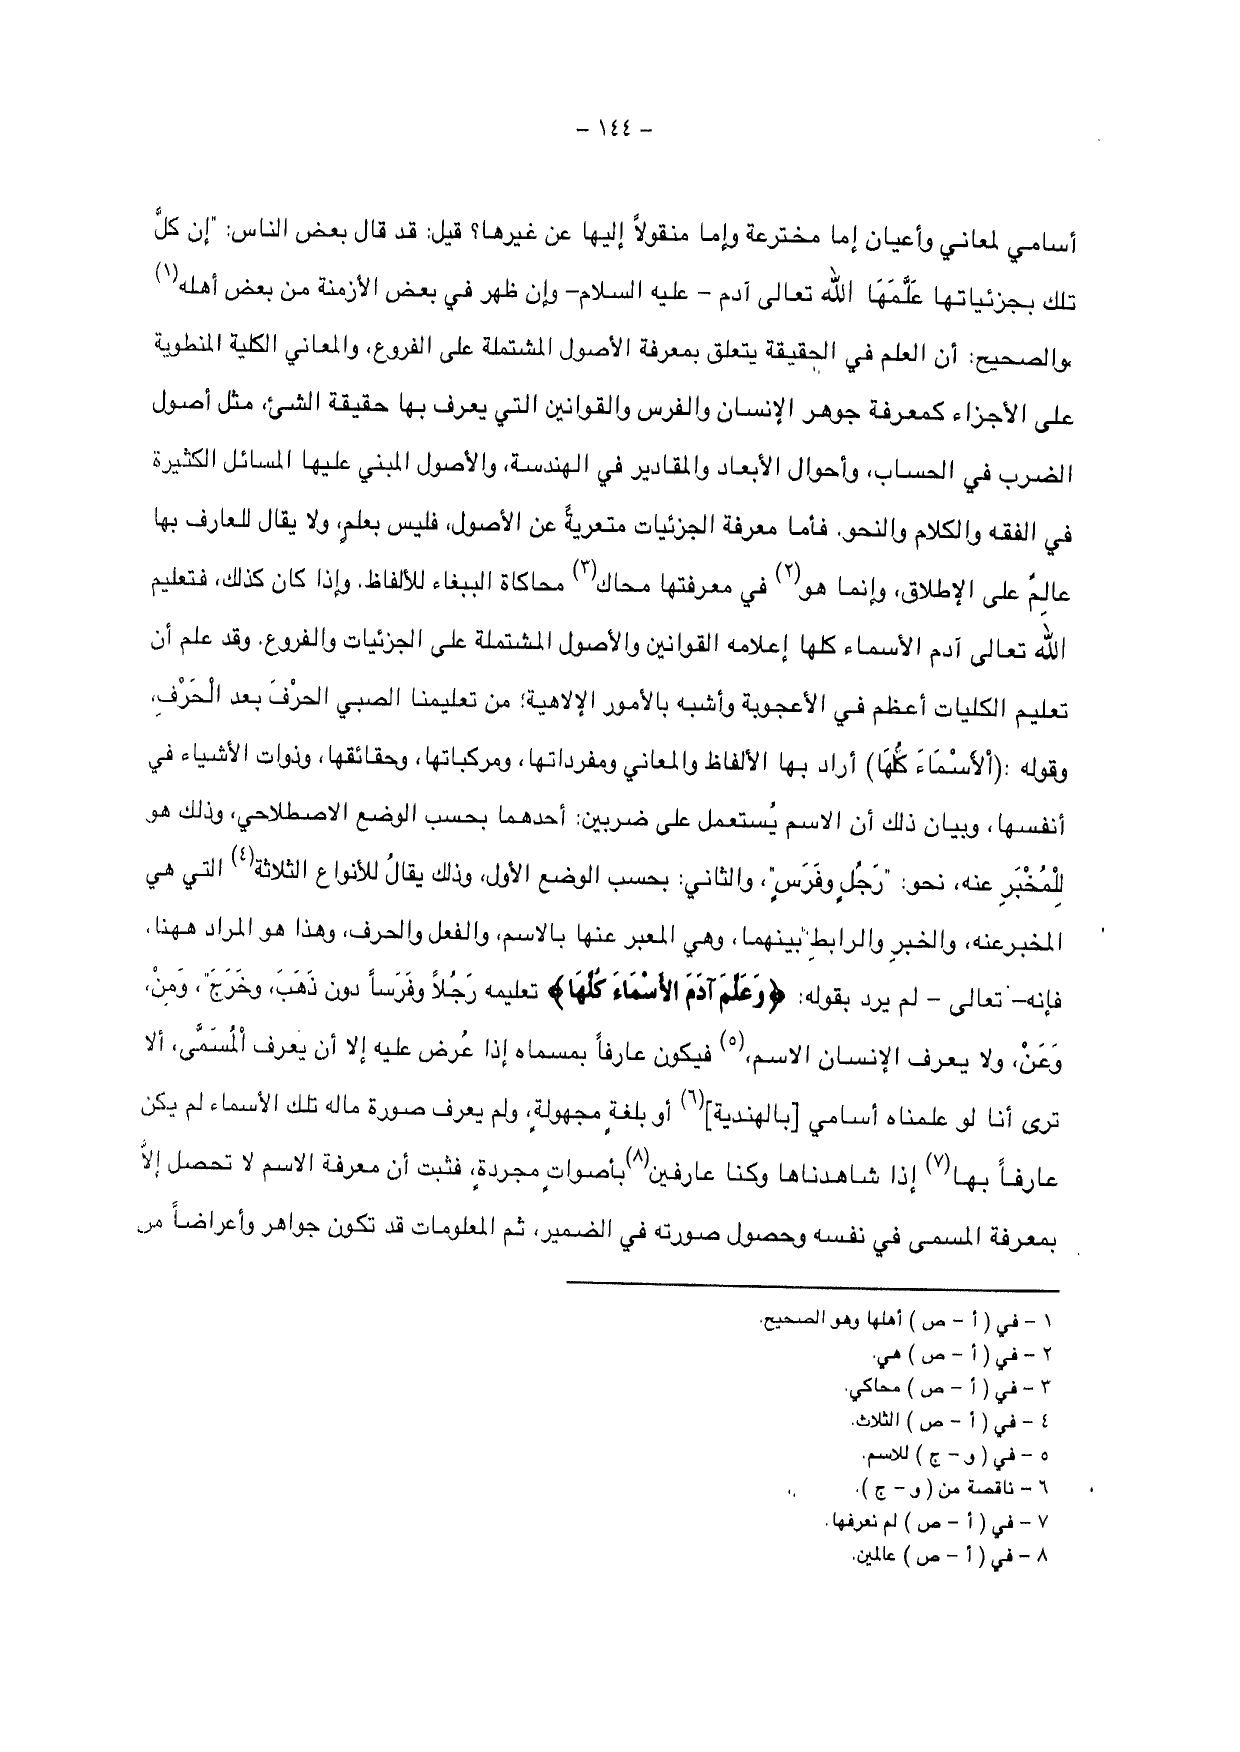 – ١٤٤ –
أسامي لمعاني وأعيان إما مخترعة وإما منقولاً إليها عن غيرها؟ قيل: قد قال بعض الناس: "إن كلَّ
تلك بجزئياتها عَلَّمَهَا اللهُ تعالى آدم – عليه السلام– وإن ظهر في بعض الأزمنة من بعض أهله(١)
والصحيح: أن العلم في الحقيقة يتعلق بمعرفة الأصول المشتملة على الفروع، والمعاني الكلية المنطوية
على الأجزاء كمعرفة جوهر الإنسان والفرس والقوانين التي يعرف بها حقيقة الشئ، مثل أصول
الضرب في الحساب، وأحوال الأبعاد والمقادير في الهندسة، والأصول المبني عليها المسائل الكثيرة
في الفقه والكلام والنحو. فأما معرفة الجزئيات متعريةً عن الأصول، فليس بعلمٍ، ولا يقال للعارف بها
عالمٌ على الإطلاق، وإنما هو(٢) في معرفتها محاك(٣) محاكاة الببغاء للألفاظ. وإذا كان كذلك، فتعليم
اللهِ تعالى آدم الأسماء كلها إعلامه القوانين والأصول المشتملة على الجزئيات والفروع. وقد علم أن
تعليم الكليات أعظم في الأعجوبة وأشبه بالأمور الإلاهية؛ من تعليمنا الصبي الحرْفَ بعد الْحَرْفِ،
وقوله :(الْأَسْمَاءَ كُلَّهَا) أراد بها الألفاظ والمعاني ومفرداتها، ومركباتها، وحقائقها، وذوات الأشياء في
أنفسها، وبيان ذلك أن الاسم يُستعمل على ضربين: أحدهما بحسب الوضع الاصطلاحي، وذلك هو
للْمُخْبَرِ عنه، نحو: "رَجُلٍ وفَرَسٍ"، والثاني: بحسب الوضع الأول، وذلك يقالُ للأنواع الثلاثة(٤) التي هي
المخبرعنه، والخبر والرابطِ بينهما، وهي المعبر عنها بالاسم، والفعل والحرف، وهذا هو المراد ههنا،
فإنه– تعالى – لم يرد بقوله: ﴿وَعَلَّمَ آدَمَ الأَسْمَاءَ كُلَّهَا﴾ تعليمه رَجُلاً وفَرَساً دون ذَهَبَ، وخَرَجَ"، ومَنْ،
وَعَنْ، ولا يعرف الإنسان الاسم،(٥) فيكون عارفاً بمسماه إذا عُرض عليه إلا أن يعرف الْمُسَمَّى، ألا
ترى أنا لو علمناه أسامي [بالهندية](٦) أو بلغةٍ مجهولةٍ، ولم يعرف صورة ماله تلك الأسماء لم يكن
عارفاً بها(٧) إذا شاهدناها وكنا عارفين(٨) بأصواتٍ مجردةٍ، فثبت أن معرفة الاسم لا تحصل إلاَّ
بمعرفة المسمى في نفسه وحصول صورته في الضمير، ثم المعلومات قد تكون جواهر وأعراضاً من
١ – في ( أ – ص ) أهلها وهو الصحيح.
٢ – في ( أ – ص ) هي.
٣ – في ( أ – ص ) محاكي.
٤ – في ( أ – ص ) الثلاث.
٥ – في ( و – ج ) للاسم.
٦ – ناقصة من ( و – ج ).
٧ – في ( أ – ص ) لم نعرفها.
٨ – في ( أ – ص ) عالمين.